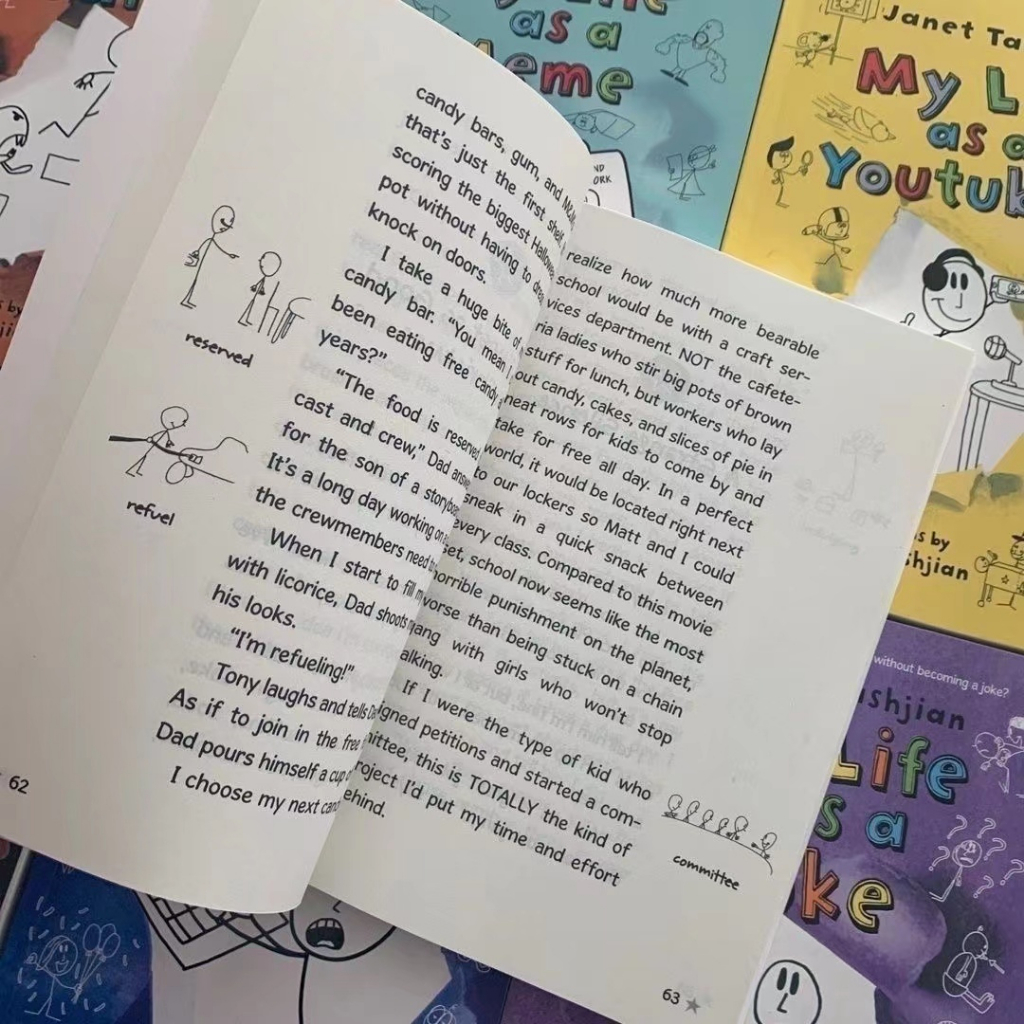 as a
eme
Janet Ta
My L
as a
Youtub
candy bars, gum, and M&M
that's just the first shel
scoring the biggest Hallowe
pot without having to dre
knock on doors.
I take a huge bite of
candy bar. "You mean I
been eating free candy
years?"
"The food is reserved
cast and crew," Dad answ
for the son of a storyboa
It's a long day working on
the crewmembers need
When I start to fill m
with licorice, Dad shoots
his looks.
"I'm refueling!"
Tony laughs and tells Da
As if to join in the free
Dad pours himself a cup
I choose my next can
reserved
refuel
62
realize how much more bearable
school would be with a craft ser-
vices department. NOT the cafete-
ria ladies who stir big pots of brown
stuff for lunch, but workers who lay
out candy, cakes, and slices of pie in
neat rows for kids to come by and
take for free all day. In a perfect
world, it would be located right next
to our lockers so Matt and I could
sneak in a quick snack between
every class. Compared to this movie
set, school now seems like the most
horrible punishment on the planet,
worse than being stuck on a chain
gang with girls who won't stop
alking.
If I were the type of kid who
igned petitions and started a com-
mittee, this is TOTALLY the kind of
roject I'd put my time and effort
ehind.
committee
63
s by
shjian
without becoming a joke?
ashjian
Life
s a
ke